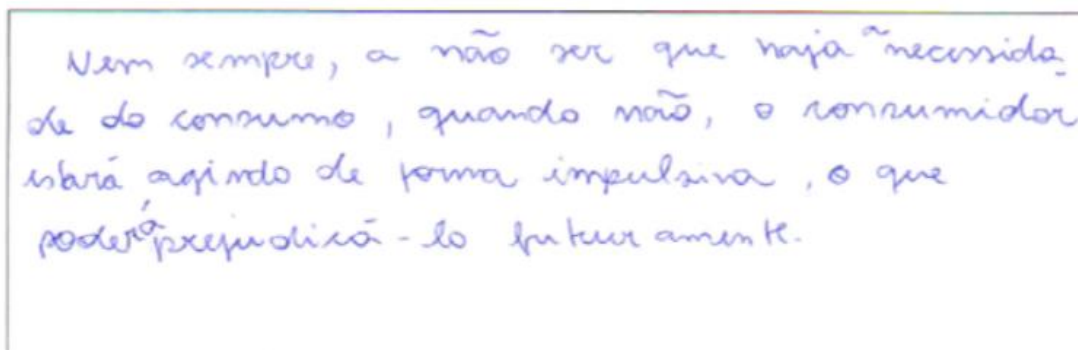 Nem sempre, a não ser que haja a necessida-
de do consumo, quando não, o consumidor
estará agindo de forma impulsiva, o que
poderá prejudicá-lo futuramente.